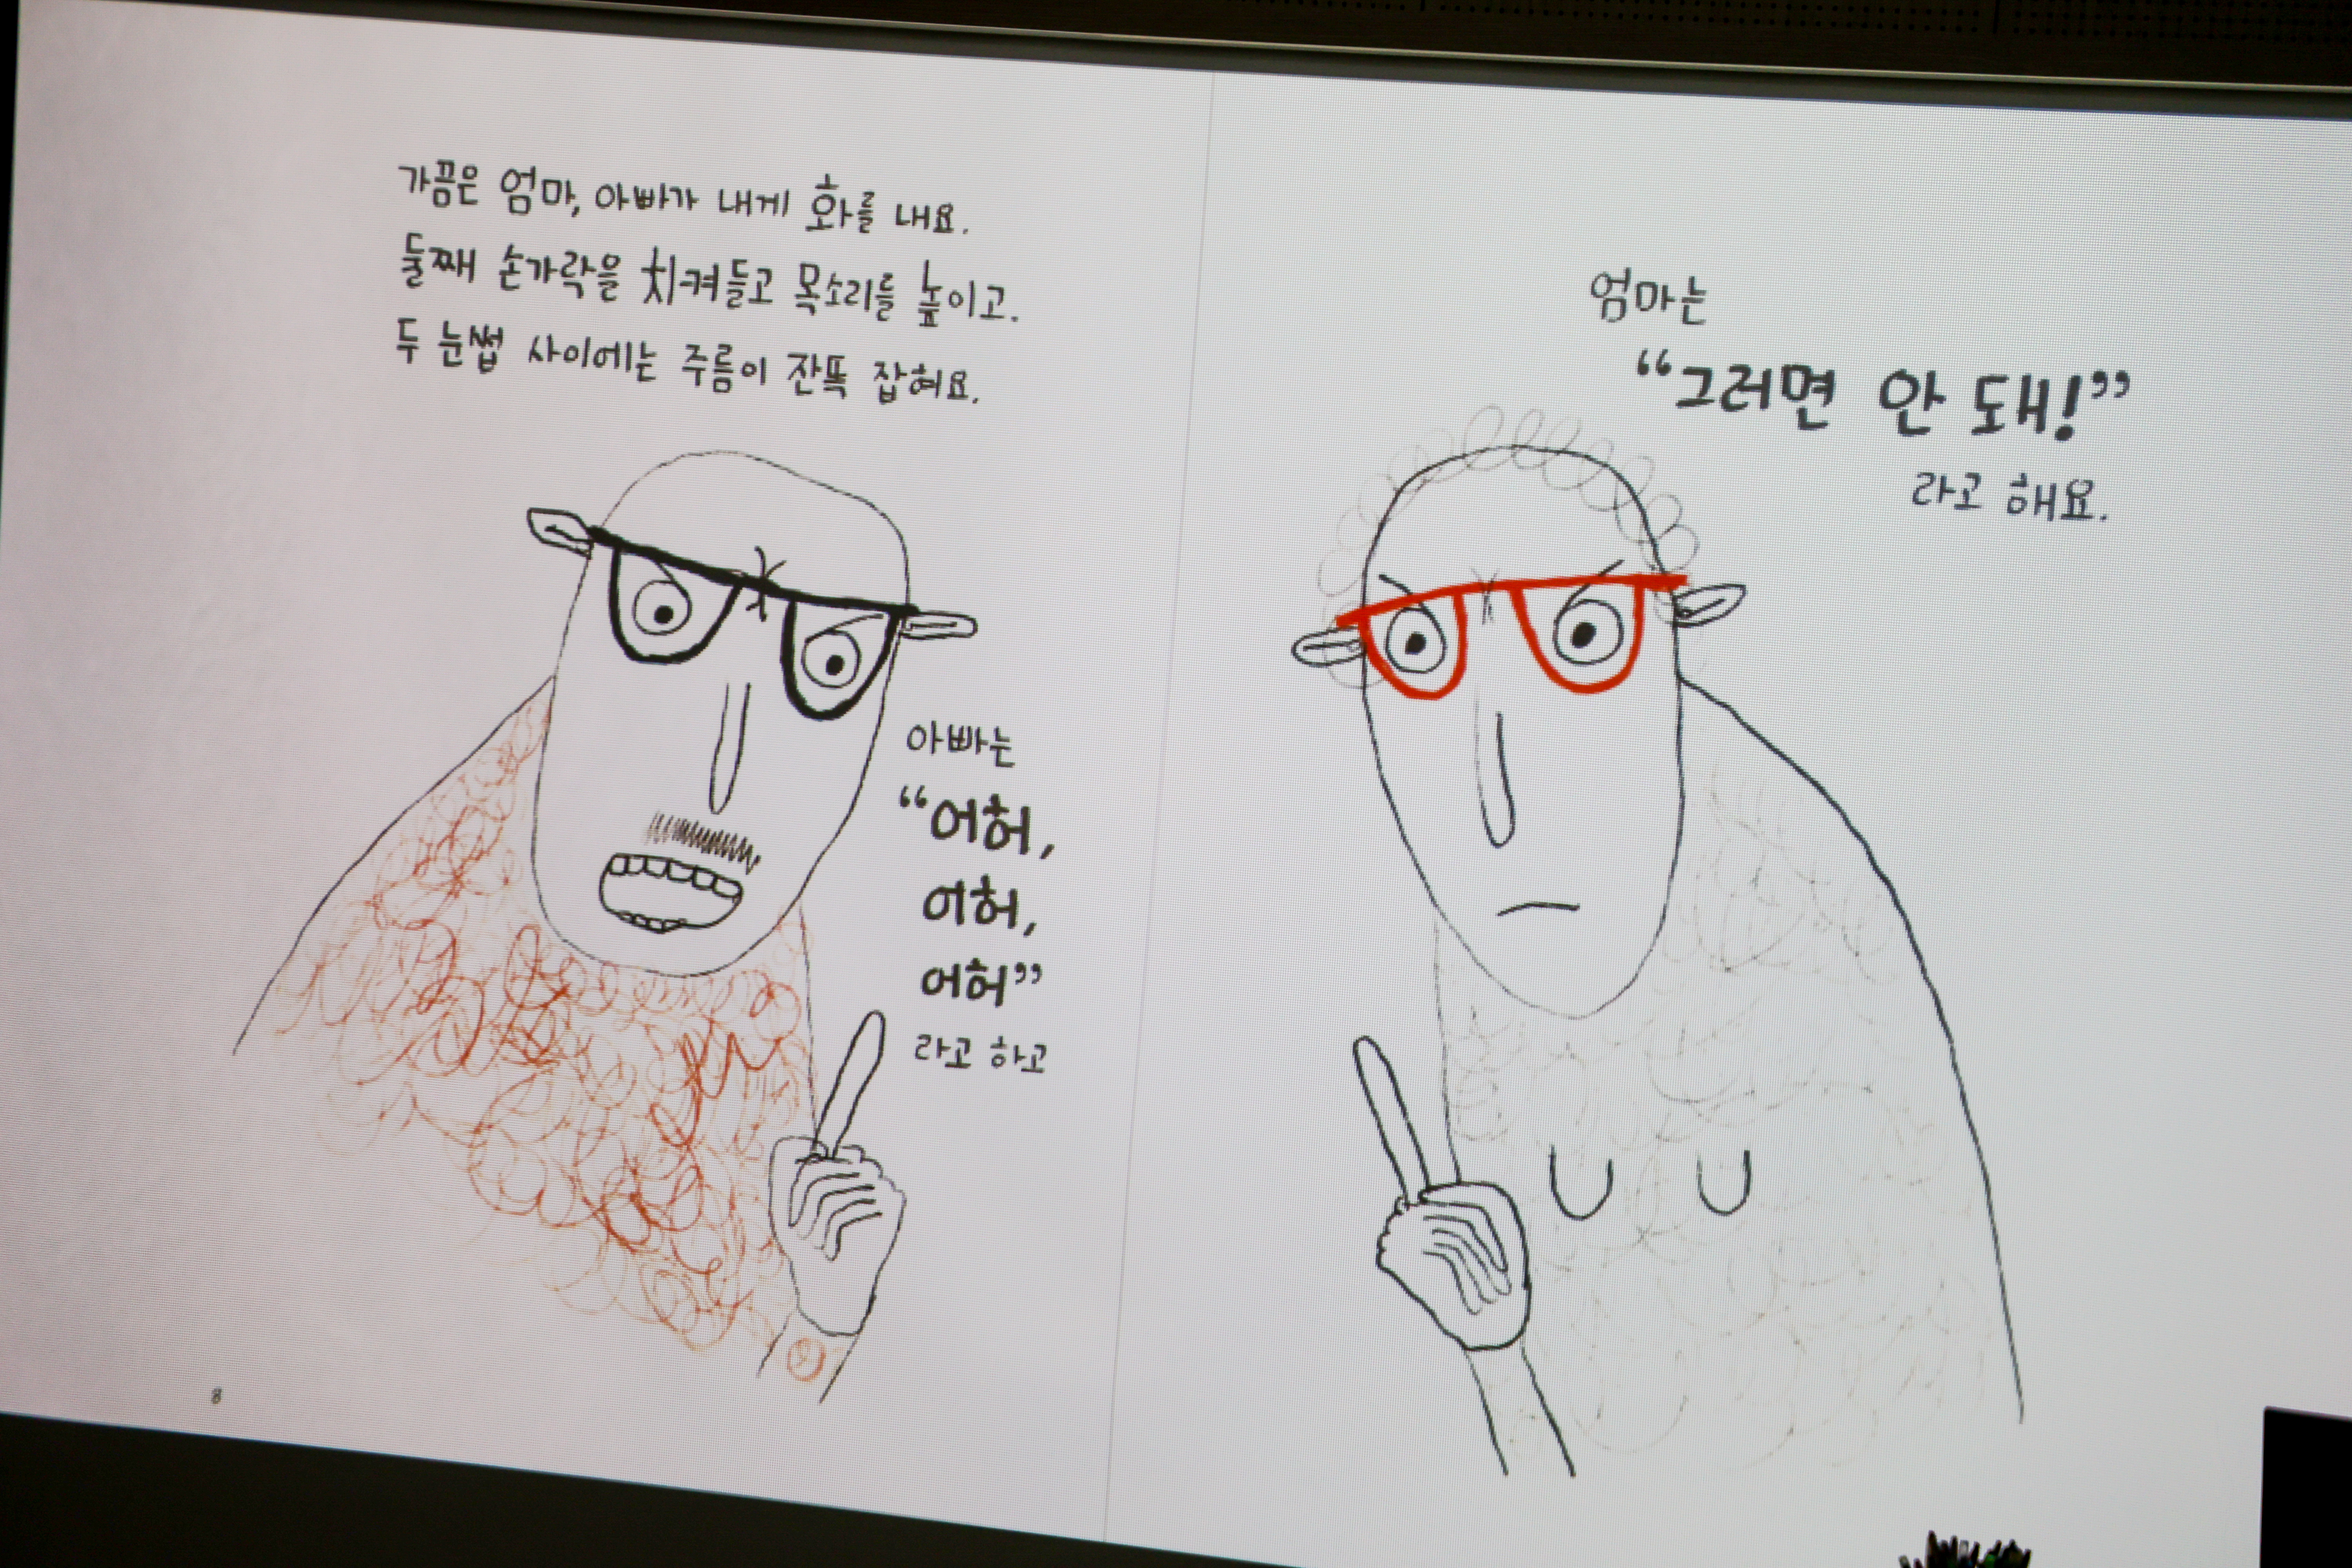 가끔은 엄마, 아빠가 내게 화를 내요.
둘째 손가락을 치켜들고 목소리를 높이고.
두 눈썹 사이에는 주름이 잔뜩 잡혀요.
아빠는
“어허,
어허,
어허”
라고 하고
8
엄마는
“그러면 안 돼!”
라고 해요.